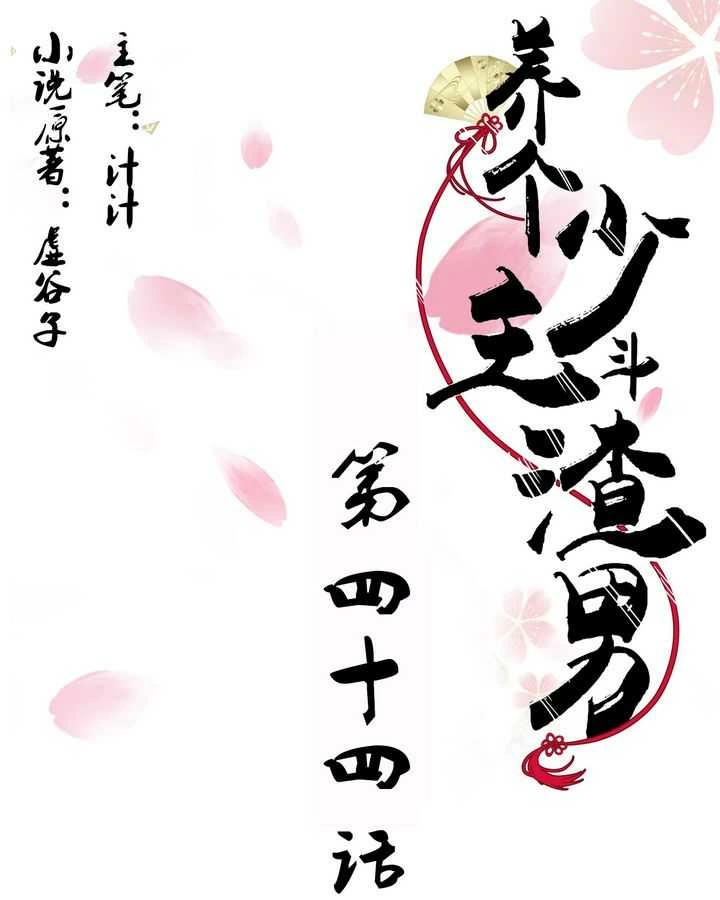 养个少主斗渣男
第四十四话
主笔：汁汁
小说原著：虚谷子